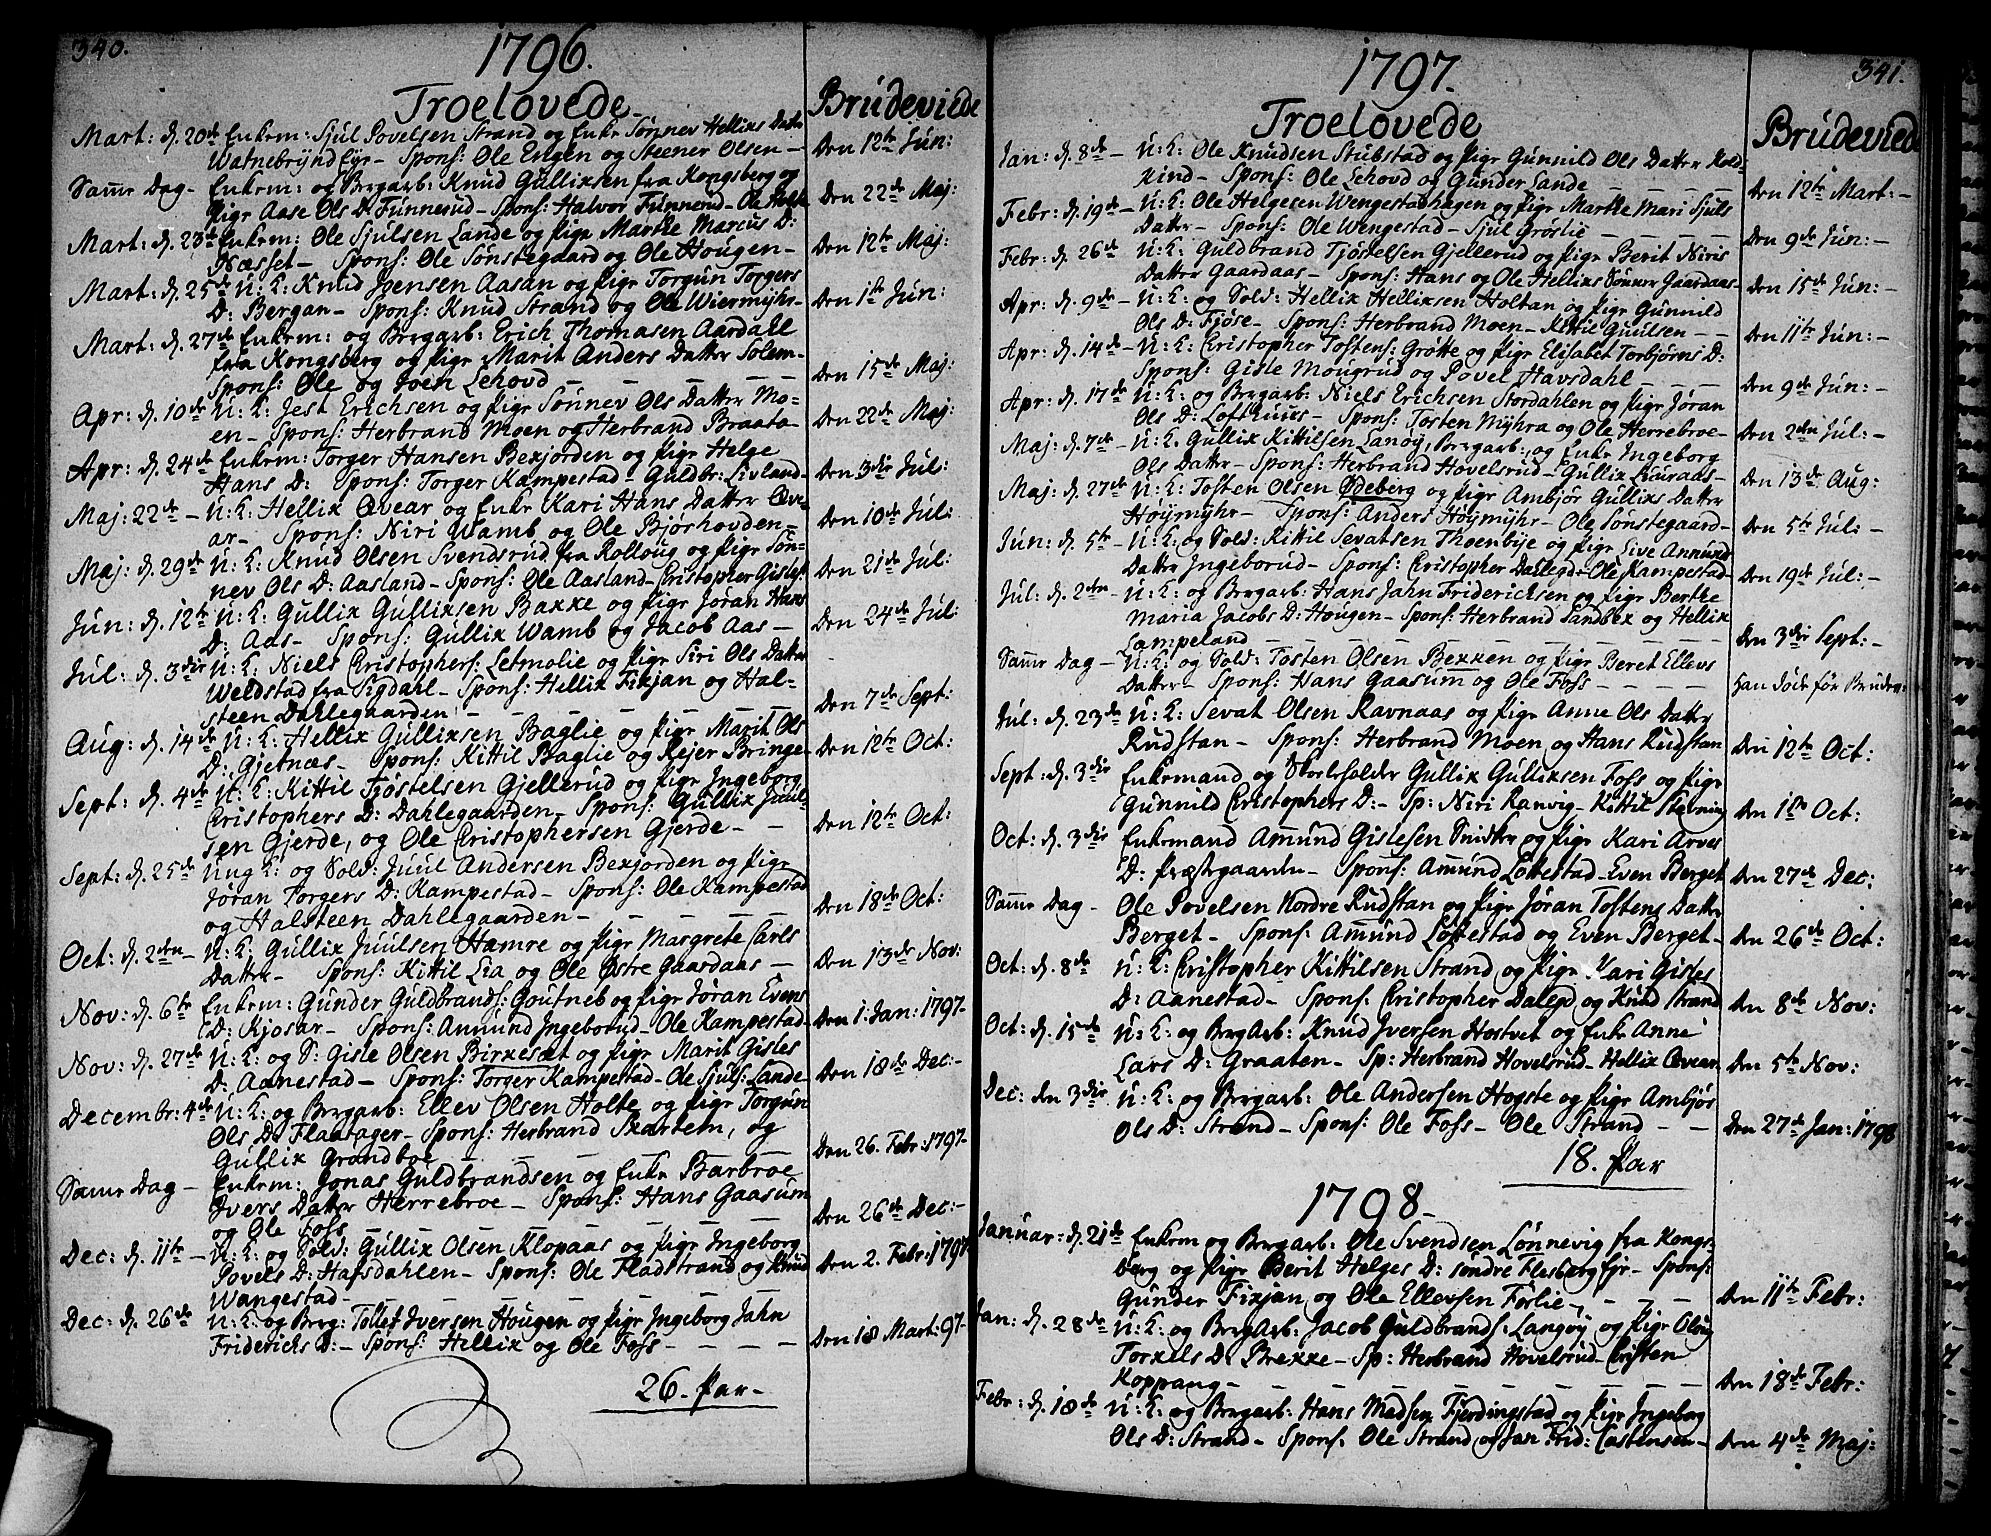 340.
1796.
Troelovede
Brudeviede
Mart: d. 20de Enkem: Sjul Povelsen Strand og Enke Sønnev Hellixs Datter
Watnebrynd Eyr - Spons: Ole Engen og Steener Olsen -
Den 12te Jun:
Samme Dag - Enkem: og Bergarb: Knud Gullixsen fra Kongsberg og
Pige Aase Ols D. Funnerud - Spons: Halvor Funnerud - Ole
Den 22de Maj:
Mart: d. 23de Enkem: Ole Sjulsen Lande og Pige Marthe Marcus D:
Næsset - Spons: Ole Sønstegaard og Ole Hougen -
Den 12te Maj:
Mart: d. 25de U: K: Knud Joensen Aasan og Pige Torgun Torgers
D: Bergan - Spons: Knud Strand og Ole Wiermyhr -
Den 1te Jun:
Mart: d. 27de Enkem: og Bergarb: Erich Thomasen Aardahl
fra Kongsberg og Pige Marit Anders Datter Solem -
Spons: Ole og Joen Lehovd - - - - -
Den 15de Maj:
Apr: d. 10de U: K: Jest Erichsen og Pige Sønnev Ols Datter Mo=
en - Spons: Herbrand Moen og Herbrand Braata -
Den 22de Maj:
Apr: d. 24de Enkem: Torger Hansen Bexjorden og Pige Helge
Hans D: Spons: Torger Kampestad - Guldbr: Livland -
Den 3die Jul:
Maj: 22de - U: K: Hellix Qvear og Enke Kari Hans Datter Qve=
ar - Spons: Niri Wamb og Ole Bjørhovden -
Den 10de Jul:
Maj: d. 29de U: K: Knud Olsen Svendsrud fra Rolloug og Pige Søn=
nev Ols D: Aasland - Spons: Ole Aasland - Cristopher Gislef
Den 21de Jul:
Jun: d. 12te U: K: Gullix Gullixsen Baxxe og Pige Jøran Hans
D: Aas - Spons: Gullix Wamb og Jacob Aas -
Den 24de Jul:
Jul: d. 3die U: K: Niels Cristophers: Letmolie og Pige Siri Ols Datter
Weldstad fra Sigdahl - Spons: Hellix Fixjan og Hal=
steen Dahlegaarden - - - - -
Den 7de Sept:
Aug: d. 14de U: K: Hellix Gullixsen Baglie og Pige Marit Ols
D: Gjetnæs - Spons: Kittil Baglie og Rejer Bringe -
Den 12te Oct:
Sept: d. 4de U: K: Kittil Tjøstelsen Gjellerud og Pige Ingeborg
Cristophers D: Dahlegaarden - Spons: Gullix Juul=
sen Gjerde, og Ole Cristophersen Gjerde - -
Den 12te Oct:
Sept: d. 25de Ung K: og Sold: Juul Andersen Bexjorden og Pige
Jøran Torgers D: Kampestad - Spons: Ole Kampestad
og Halsteen Dahlegaarden - - - - -
Den 18de Oct:
Oct: d. 2den - U: K: Gullix Juulsen Hamre og Pige Margrete Carls
Datter - Spons: Kittil Lia og Ole Østre Gaasdaas -
Den 13de Nov:
Nov: d. 6te Enkem: Gunder Guldbrands: Goutneb og Pige Jøran Evens
D: Kjosar - Spons: Amund Ingeborud - Ole Kampestad -
Den 1. Jan: 1797.
Nov: d. 27de U: K: og S: Gisle Olsen Birkesæt og Pige Marit Gisles
D: Aanestad - Spons: Torger Kampestad - Ole Sjuls: Lande -
Den 18de Dec: -
Decembr: 4de U: K: og Bergarb: Ellev Olsen Holte og Pige Torgun
Ols D: Flaatager - Spons: Herbrand Skartem, og
Gullix Grandboe - - - - -
Den 26. Febr: 1797.
Samme Dag - Enkem: Jonas Guldbrandsen og Enke Barbroe
Ivers Datter Herrebroe - Spons: Hans Gaasum
og Ole Foss - - - - -
Den 26de Dec: -
Dec: d. 11te - U: K: og Sold: Gullix Olsen Klopaas og Pige Ingeborg
Povels D: Hafsdahlen - Spons: Ole Fladstrand og Knud
Wangestad - - - - -
Den 2. Febr: 1797.
Dec: d. 26de U: K: og Berg: Tollef Iversen Hougen og Pige Ingeborg Jahn
Friderichs D: - Spons: Hellix og Ole Foss - - - -
Den 18 Mart: 97.
26. Par -
341.
1797.
Troelovede
Brudeviede
Jan: d. 8de - U: K: Ole Knudsen Stubstad og Pige Gunnild Ols Datter Kold-
kind - Spons: Ole Lehovd og Gunder Lande - - - -
Den 12te Mart: -
Febr: d. 19de - U: K: Ole Helgesen Wengestadhagen og Pige Marthe Mari Sjuls
Datter - Spons: Ole Wengestad - Sjul Groslie - - -
Den 9de Jun: -
Febr: d. 26de U: K: Guldbrand Tjøstelsen Gjellerud og Pige Berit Niris
Datter Gaardaas - Spons: Hans og Ole Hellixs Sønner Gaardaas -
Den 15de Jun: -
Apr: d. 9de - U: K: og Sold: Hellix Hellixsen Holtan og Pige Gunnild
Ols D: Fjøse - Spons: Herbrand Moen - Kittil Guulsen - -
Den 11te Jun: -
Apr: d. 14de U: K: Cristopher Tostens: Grøtte og Pige Elisabet Torbjørns D:
Spons: Gisle Mougrud og Povel Havsdahl - - - -
Den 9de Jun: -
Apr: d. 17de U: K: og Bergarb: Niels Erichsen Stordahlen og Pige Jøran
Ols D: Lofthuus - Spons: Tosten Myhra og Ole Herrebroe -
Den 2den Jul: -
Maj: d. 7de - U: K: Gullix Kittilsen Langy, Bergarb: og Enke Ingeborg
Ols Datter - Spons: Herbrand Hovelsrud - Gullix Liuraas -
Den 13de Aug:
Maj: d. 27de U: K: Tosten Olsen Ødeberg og Pige Ambjør Gullixs Datter
Høymyhr - Spons: Anders Høymyhr - Ole Sønstegaard -
Den 5te Jul: -
Jun: d. 5te - U: K: og Sold: Kittil Sevatsen Thoenbye og Pige Live Amunds
Datter Ingeborud - Spons: Cristopher Dalegd - Ole Kampestad -
Den 19de Jul: -
Jul: d. 2den - U: K: og Bergarb: Hans Jahn Friderichsen og Pige Berthe
Maria Jacobs D: Hougen - Spons: Herbrand Sandbex og Hellix
Lampeland - - - - -
Den 3die Sept: -
Samme Dag - U: K: og Sold: Tosten Olsen Bexxen og Pige Beret Ellevs
Datter - Spons: Hans Gaasum og Ole Foss - - - -
Han døde før Brudev:
Jul: d. 23de U: K: Sevat Olsen Ravnaas og Pige Anne Ols Datter
Rudstan - Spons: Herbrand Moen og Hans Rudstan
Den 12te Oct:
Sept: d. 3die Enkemand og Skoleholder Gullix Gullixsen Foss og Pige
Gunnild Cristophers D: - Sp: Niri Ranvig - Kittil Stevning
Den 1te Oct:
Oct: d. 3die Enkemand Amund Gislesen Snidker og Pige Kari Arves
D: Præstegaarden - Spons: Amund Loftestad - Even Berget
Den 27de Dec:
Samme Dag - Ole Povelsen Nordre Rudstan og Pige Jøran Tostens Datter
Berget - Spons: Amund Loftestad og Even Berget -
Den 26de Oct:
Oct: d. 8de U: K: Cristopher Kittilsen Strand, og Pige Kari Gisles
D: Aanestad - Spons: Cristopher Dalegd og Knud Strand
Den 8de Nov:
Oct: d. 15de U: K: og BergArb: Knud Iversen Hostvet og Enke Anne
Lars D: Graaten - Sp: Herbrand Hovelsrud - Hellix Qvear
Den 5te Nov:
Dec: den 3die U: K: og Bergarb: Ole Andersen Hogste og Pige Ambjør
Ols D: Strand - Spons: Ole Foss - Ole Strand - -
Den 27de Jan: 1798
18. Par
1798.
Januar: d. 21de Enkem og Bergarb: Ole Svendsen Lønnevig fra Kongs=
berg og Pige Berit Helges D: søndre Flesberg Eyr - Spons:
Gunder Fixjan og Ole Ellevsen Førlie, - - -
Den 11te Febr:
Jan: d. 28de U: K: og BergArb: Jacob Guldbrands: Langøy og Pige Oloug
Torkels D: Brekke - Sp: Herbrand Hovelsrud - Cristen
Koppang - - - - -
Den 18de Febr:
Febr: d. 18de U: K: og Bergarb: Hans Madsen Fjerdingstad og Pige Ingeborg
Ols D: Strand - Spons: Ole Strand og Jan Frid: Castensen -
Den 4de Maj: